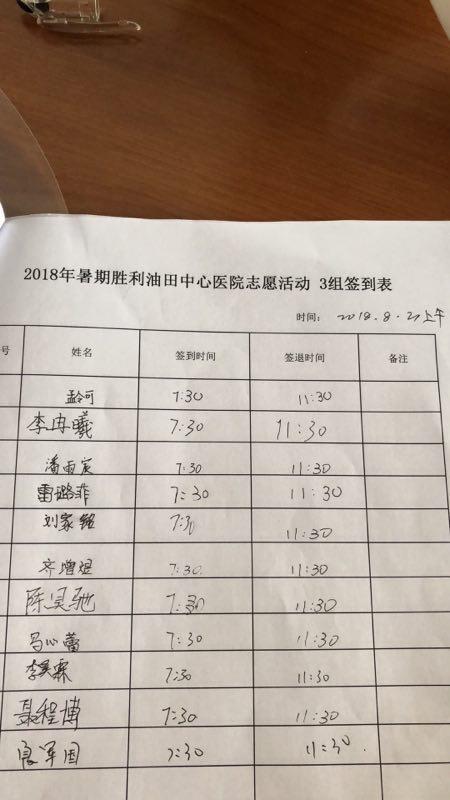 2018年暑期胜利油田中心医院志愿活动 3组签到表
时间: 2018.8.21上午
号 姓名 签到时间 签退时间 备注
孟令可 7:30 11:30
李冉曦 7:30 11:30
潘雨宸 7:30 11:30
雷璐菲 7:30 11:30
刘家铭 7:30 11:30
齐增煜 7:30. 11:30
陈昊驰 7:30 11:30
马心蕾 7:30 11:30
李美霖 7:30 11:30
聂程博 7:30 11:30
军国 7:30 11:30.